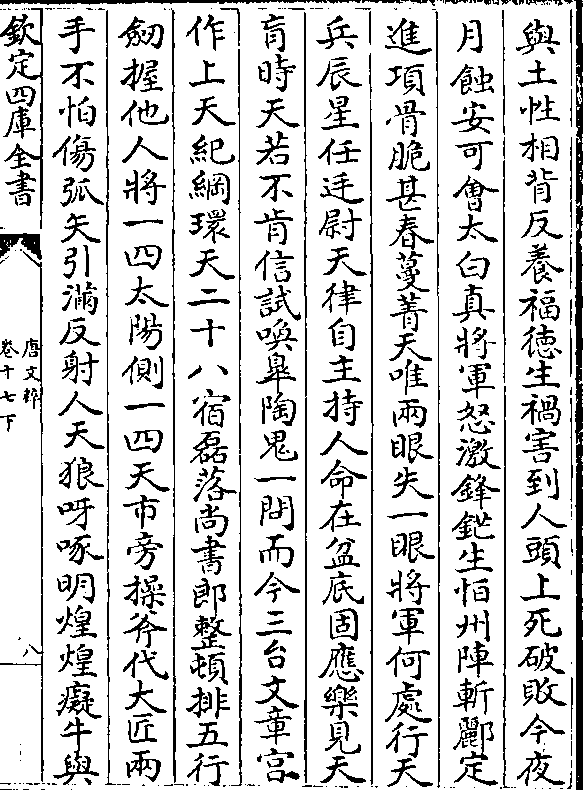 與土性相背反養福徳生禍害到人頭上死破敗今夜
月蝕安可㑹太白真將軍怒激鋒鋩生怕州陣斬酈定
進項骨脆甚春蔓菁天唯兩眼失一眼將軍何處行天
兵辰星任廷尉天律自主持人命在盆底固應樂見天
肓時天若不肯信試喚臯陶鬼一問而今三台文章宫
作上天紀綱環天二十八宿磊落尚書郎整頓排五行
劒握他人將一四太陽側一四天市旁操斧代大匠兩
手不怕傷弧矢引滿反射人天狼呀啄明煌煌癡牛與
欽定四庫全書
唐文粹
卷十七下
八